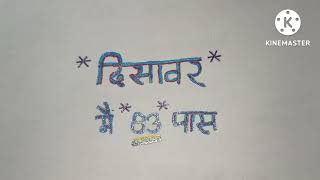 *दिसावर*
मै *83* पास
KINEMASTER